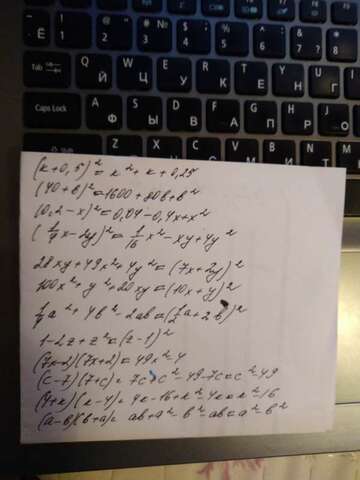 ! 1 Ё
@ " 2
# № 3
$ ; 4
% 5
^ : 6
& ? 7
* 8
Tab
Q Й
W Ц
E У
R К
T Е
Y Н
U Г
Caps Lock
A Ф
S Ы
D В
F А
G П
H Р
(к+0,5)²=к²+к+0,25
(40+b)²=1600+80b+b²
(0,2-x)²=0,04-0,4x+x²
(1/4x-2y)²=1/16x²-xy+4y²
28xy+49x²+4y²=(7x+2y)²
100x²+y²+20xy=(10x+y)²
1/4a²+4b²-2ab=(1/2a+2b)²
1-2z+z²=(z-1)²
(7x-2)(7x+2)=49x²-4
(c-7)(7+c)=7c+c²-49-7c=c²-49
(4+к)(к-4)=4к-16+к²-4к=к²-16
(a-b)(b+a)=ab+a²-b²-ab=a²-b²